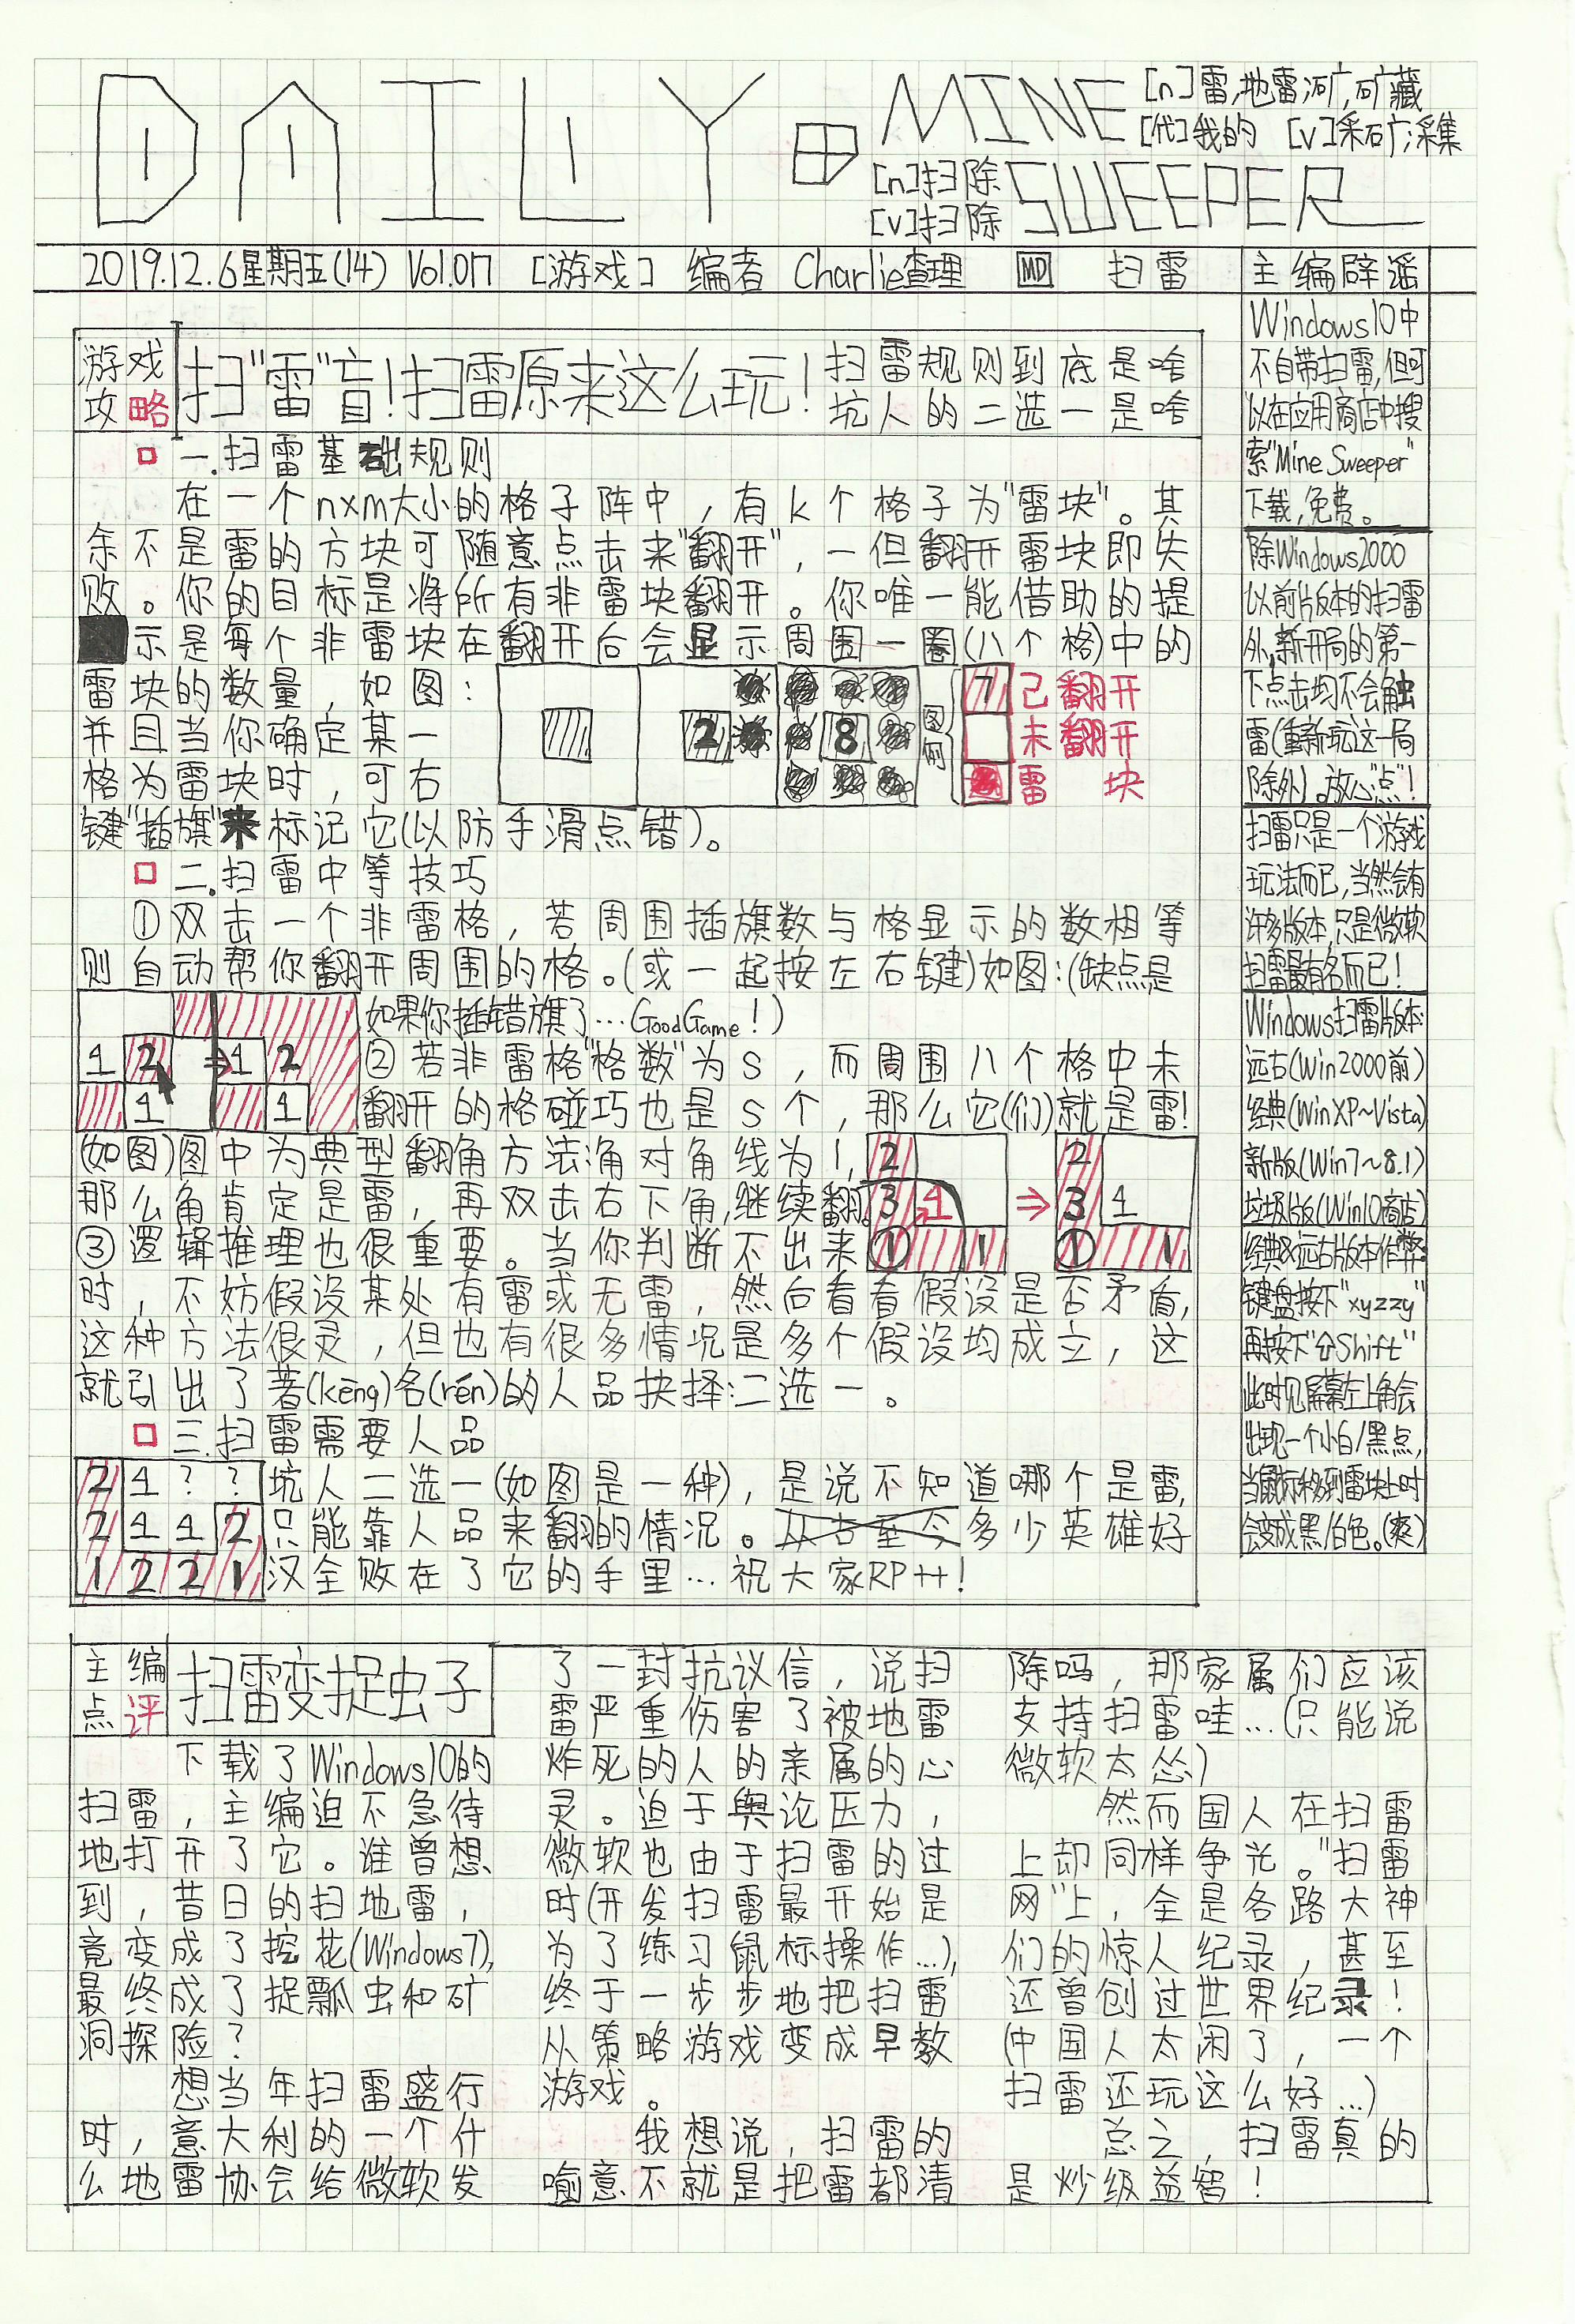 DAILY
MINE
[n]雷,地雷;矿,矿藏
[代]我的 [v]采矿;采集
[n]扫除
[v]扫除
SWEEPER
2019.12.6星期五(14) Vol.017 [游戏] 编者 Charlie查理 MD 扫雷
游戏
攻略
扫"雷"盲!扫雷原来这么玩!
扫雷规则到底是啥
坑人的二选一是啥
一.扫雷基础规则
在一个n×m大小的格子阵中,有k个格子为"雷块"。其
余不是雷的方块可随意点击来"翻开",一但翻开雷块即失
败。你的目标是将所有非雷块翻开。你唯一能借助的提
示是每个非雷块在翻开后会显示周围一圈(八个格)中的
雷块的数量,如图:
并且当你确定某一
格为雷块时,可右
键"插旗"来标记它(以防手滑点错)。
2
8
图例
7 已翻开
未翻开
雷 块
二.扫雷中等技巧
①双击一个非雷格,若周围插旗数与格显示的数相等
则自动帮你翻开周围的格。(或一起按左右键)如图:(缺点是
如果你插错旗了…GoodGame!)
1 2 ⇒ 1 2
1 1
②若非雷格"格数"为S,而周围八个格中未
翻开的格碰巧也是S个,那么它(们)就是雷!
(如图)图中为典型翻角方法:角对角线为1,
那么角肯定是雷,再双击右下角,继续翻。
2 2
3 1 ⇒ 3 1
① 1 ① 1
③逻辑推理也很重要。当你判断不出来
时,不妨假设某处有雷或无雷,然后看看假设是否矛盾,
这种方法很灵,但也有很多情况是多个假设均成立,这
就引出了著(kēng)名(rén)的人品抉择:二选一。
三.扫雷需要人品
2 1 ? ?
2 1 1 2
1 2 2 1
坑人二选一(如图是一种),是说不知道哪个是雷,
只能靠人品来翻的情况。从古至今多少英雄好
汉全败在了它的手里…祝大家RP++!
主编辟谣
Windows10中
不自带扫雷,但可
以在应用商店中搜
索"Mine Sweeper"
下载,免费。
除Windows2000
以前版本的扫雷
外,新开局的第一
下点击均不会触
雷(重新玩这一局
除外)。放心"点"!
扫雷只是一个游戏
玩法而已,当然会有
许多版本,只是微软
扫雷最有名而已!
Windows扫雷版本:
远古(Win2000前)
经典(WinXP~Vista)
新版(Win7~8.1)
垃圾版(Win10商店)
经典&远古版本作弊:
键盘按下"xyzzy"
再按下"⇧Shift"
此时见屏幕左上角会
出现一个小白/黑点,
当鼠标移到雷块上时
会变成黑/白色。(爽)
主编
点评
扫雷变捉虫子
下载了Windows10的
扫雷,主编迫不急待
地打开了它。谁曾想
到,昔日的扫地雷,
竟变成了挖花(Windows7),
最终成了捉瓢虫和矿
洞探险?
想当年扫雷盛行
时,意大利的一个什
么地雷协会给微软发
了一封抗议信,说扫
雷严重伤害了被地雷
炸死的人的亲属的心
灵。迫于舆论压力,
微软也由于扫雷的过
时(开发扫雷最开始是
为了练习鼠标操作…),
终于一步步地把扫雷
从策略游戏变成早教
游戏。
我想说,扫雷的
喻意不就是把雷都清
除吗,那家属们应该
支持扫雷哇…(只能说
微软太怂)
然而国人在扫雷
上却同样争光。"扫雷
网"上,全是各路大神
们的惊人纪录,甚至
还曾创过世界纪录!
(中国人太闲了,一个
扫雷还玩这么好…)
总之,扫雷真的
是炒级益智!